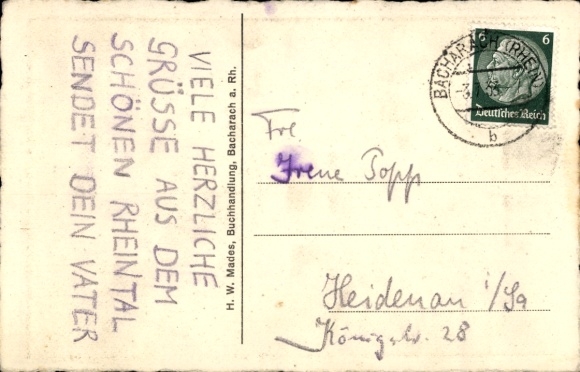 VIELE HERZLICHE
GRÜSSE AUS DEM
SCHÖNEN RHEINTAL
SENDET DEIN VATER
H. W. Mades, Buchhandlung, Bacharach a. Rh.
6 6
Deutsches Reich
BACHARACH (RHEIN)
b
Frl
Irene Topp
Heidenau i/Sa
Königstr. 28